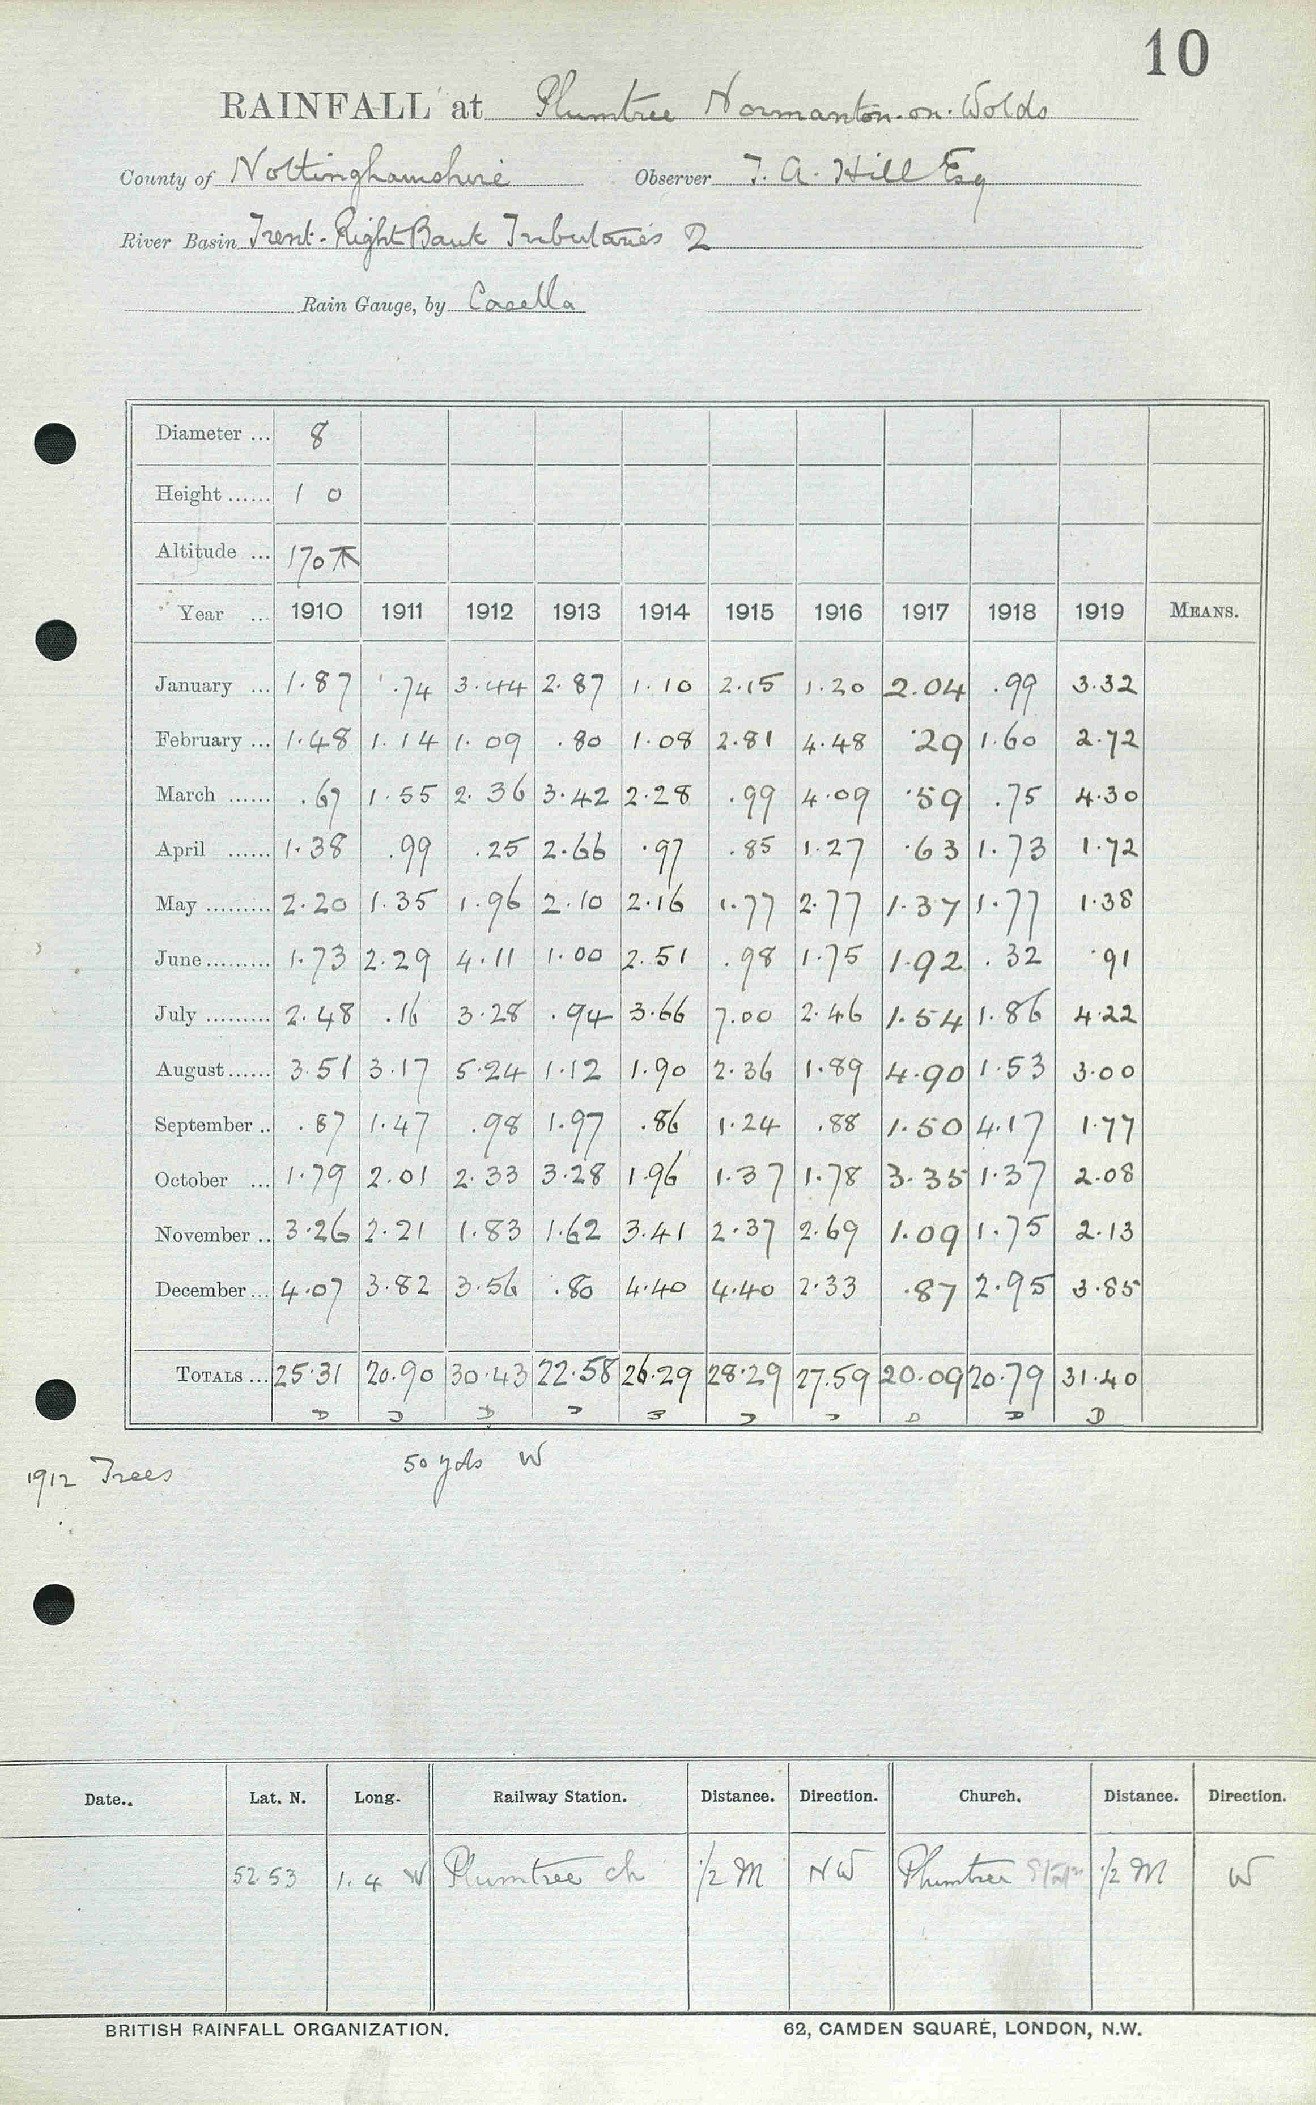 10
RAINFALL at Plumtree Normanton-on-Wolds
County of Nottinghamshire Observer T. A. Hill Esq
River Basin Trent-Right Bank Tributaries 2
Rain Gauge, by Casella
Diameter ... 8
Height ...... 1 0
Altitude ... 170
Year ... 1910 1911 1912 1913 1914 1915 1916 1917 1918 1919 MEANS.
January ... 1.87 .74 3.44 2.87 1.10 2.15 1.20 2.04 .99 3.32
February ... 1.48 1.14 1.09 .80 1.08 2.81 4.48 .29 1.60 2.72
March ...... .67 1.55 2.36 3.42 2.28 .99 4.09 .59 .75 4.30
April ...... 1.38 .99 .25 2.66 .97 .85 1.27 .63 1.73 1.72
May ......... 2.20 1.35 1.96 2.10 2.16 1.77 2.77 1.37 1.77 1.38
June ......... 1.73 2.29 4.11 1.00 2.51 .98 1.75 1.92 .32 .91
July ......... 2.48 .16 3.28 .94 3.66 7.00 2.46 1.54 1.86 4.22
August ...... 3.51 3.17 5.24 1.12 1.90 2.36 1.89 4.90 1.53 3.00
September .. .87 1.47 .98 1.97 .86 1.24 .88 1.50 4.17 1.77
October ... 1.79 2.01 2.33 3.28 1.96 1.37 1.78 3.35 1.37 2.08
November .. 3.26 2.21 1.83 1.62 3.41 2.37 2.69 1.09 1.75 2.13
December ... 4.07 3.82 3.56 .80 4.40 4.40 2.33 .87 2.95 3.85
TOTALS ... 25.31 20.90 30.43 22.58 26.29 28.29 27.59 20.09 20.79 31.40
D D D D B D D D D D
1912 Trees 50 yds W
Date.. Lat. N. Long. Railway Station. Distance. Direction. Church. Distance. Direction.
52 53 1. 4 W Plumtree ch 1/2 M NW Plumtree Statn 1/2 M W
BRITISH RAINFALL ORGANIZATION. 62, CAMDEN SQUARE, LONDON, N.W.